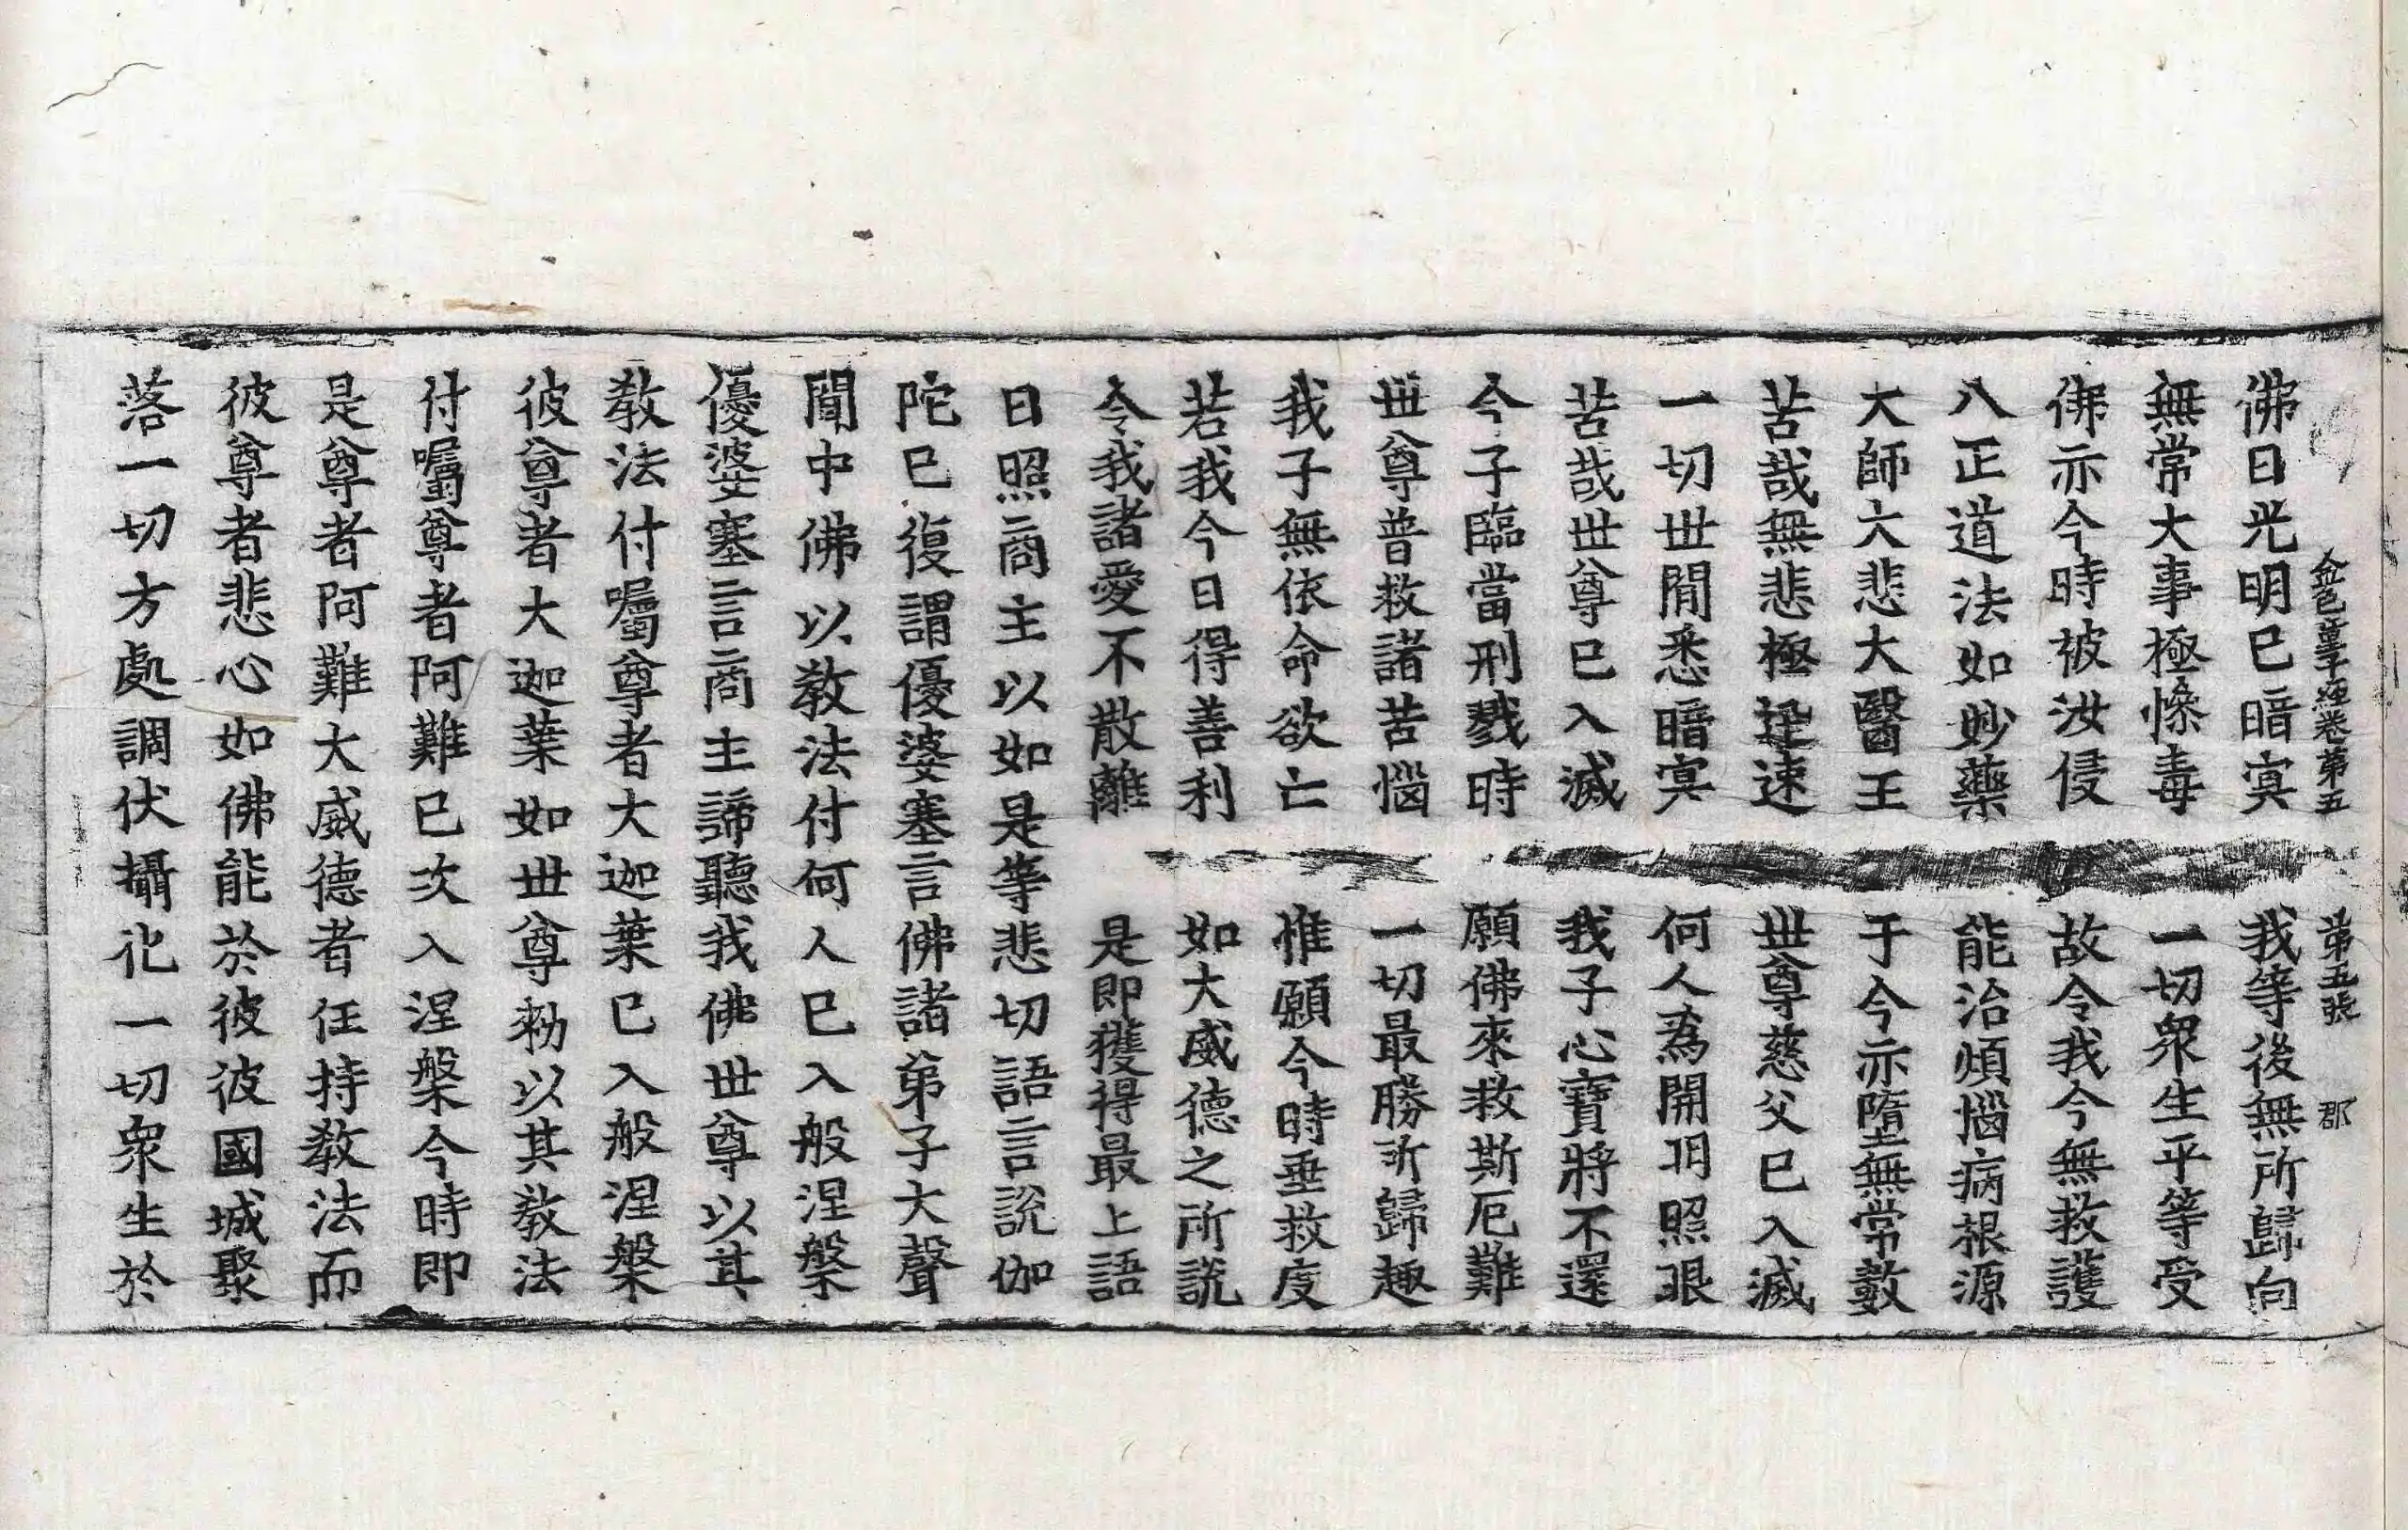 金色童子經卷第五 第五張 郡
佛日光明已暗冥 我等後無所歸向
無常大事極慘毒 一切衆生平等受
佛亦今時被汝侵 故令我今無救護
八正道法如妙藥 能治煩惱病根源
大師大悲大醫王 于今亦墮無常數
苦哉無悲極迅速 世尊慈父已入滅
一切世間悉暗冥 何人為開明照眼
苦哉世尊已入滅 我子心寶將不還
今子臨當刑戮時 願佛來救斯厄難
世尊普救諸苦惱 一切最勝所歸趣
我子無依命欲亡 惟願今時垂救度
若我今日得善利 如大威德之所說
令我諸愛不散離 是即獲得最上語
日照商主以如是等悲切語言說伽
陀已復謂優婆塞言佛諸弟子大聲
聞中佛以教法付何人已入般涅槃
優婆塞言商主諦聽我佛世尊以其
教法付囑尊者大迦葉已入般涅槃
彼尊者大迦葉如世尊勑以其教法
付囑尊者阿難已次入涅槃今時即
是尊者阿難大威德者任持教法而
彼尊者悲心如佛能於彼彼國城聚
落一切方處調伏攝化一切衆生於